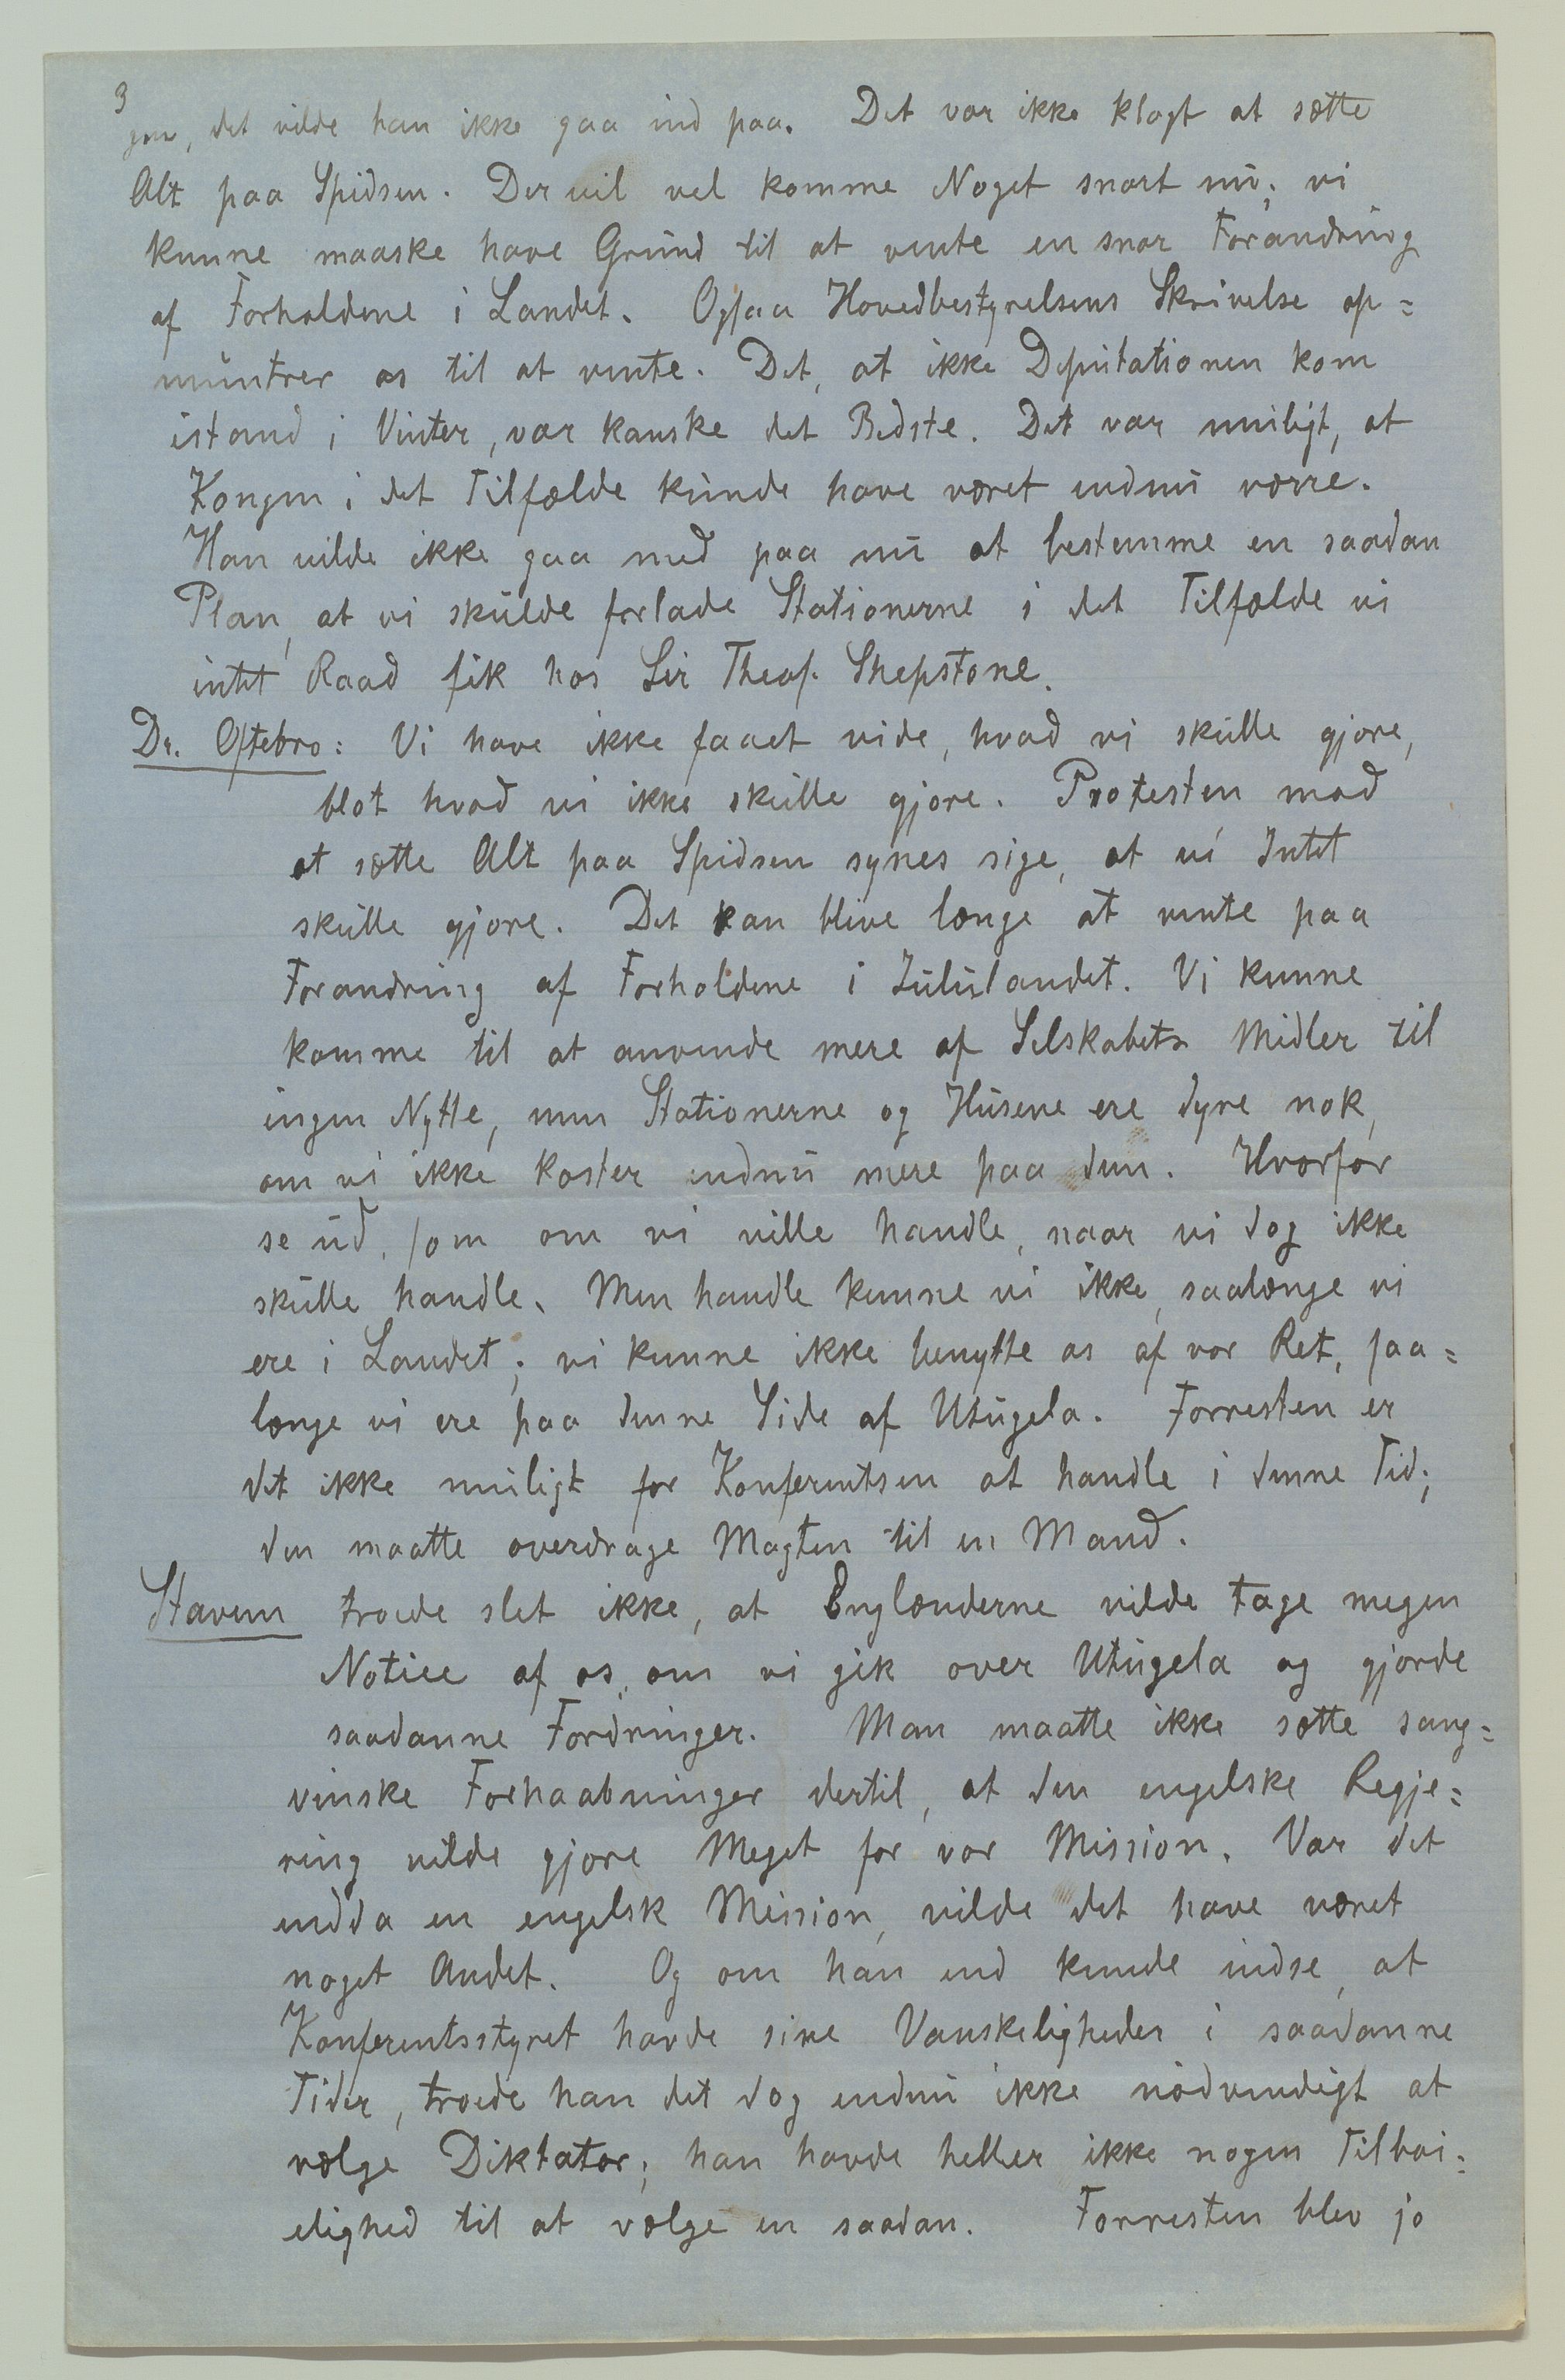 3
gen, det vilde han ikke gaa ind paa. Det var ikke klogt at sætte
Alt paa Spidsen. Der vil vel komme Noget snart nu; vi
kunne maaske have Grund til at vente en snar Forandring
af Forholdene i Landet. Ogsaa Hovedbestyrelsens Skrivelse op=
muntrer os til at vente. Det, at ikke Deputationen kom
istand i Vinter, var kanske det Bedste. Det var muligt, at
Kongen i det Tilfælde kunde have været endnu værre.
Han vilde ikke gaa med paa nu at bestemme en saadan
Plan, at vi skulde forlade Stationerne i det Tilfælde vi
intet Raad fik hos Sir Theof. Shepstone.
Dr. Oftebro: Vi have ikke faaet vide, hvad vi skulle gjøre,
blot hvad vi ikke skulle gjøre. Protesten mod
at sætte Alt paa Spidsen synes sige, at vi Intet
skulle gjøre. Det kan blive længe at vente paa
Forandring af Forholdene i Zululandet. Vi kunne
komme til at anvende mere af Selskabets Midler til
ingen Nytte, men Stationerne og Husene ere dyre nok,
om vi ikke koster endnu mere paa dem. Hvorfor
se ud, som om vi ville handle, naar vi dog ikke
skulle handle. Men handle kunne vi ikke, saalænge vi
ere i Landet; vi kunne ikke benytte os af vor Ret, saa=
længe vi ere paa denne Side af Utugela. Forresten er
det ikke muligt for Konferentsen at handle i denne Tid;
den maatte overdrage Magten til en Mand.
Stavem troede slet ikke, at Englænderne vilde tage megen
Notice af os, om vi gik over Utugela og gjorde
saadanne Fordringer. Man maatte ikke sætte sang=
vinske Forhaabninger dertil, at den engelske Regje=
ring vilde gjøre Meget for vor Mission. Var det
endda en engelsk Mission, vilde det have været
noget Andet. Og om han end kunde indse, at
Konferentsstyret havde sine Vanskeligheder i saadanne
Tider, troede han det dog endnu ikke nødvendigt at
vælge Diktator; han havde heller ikke nogen Tilbøi=
elighed til at vælge en saadan. Forresten blev jo